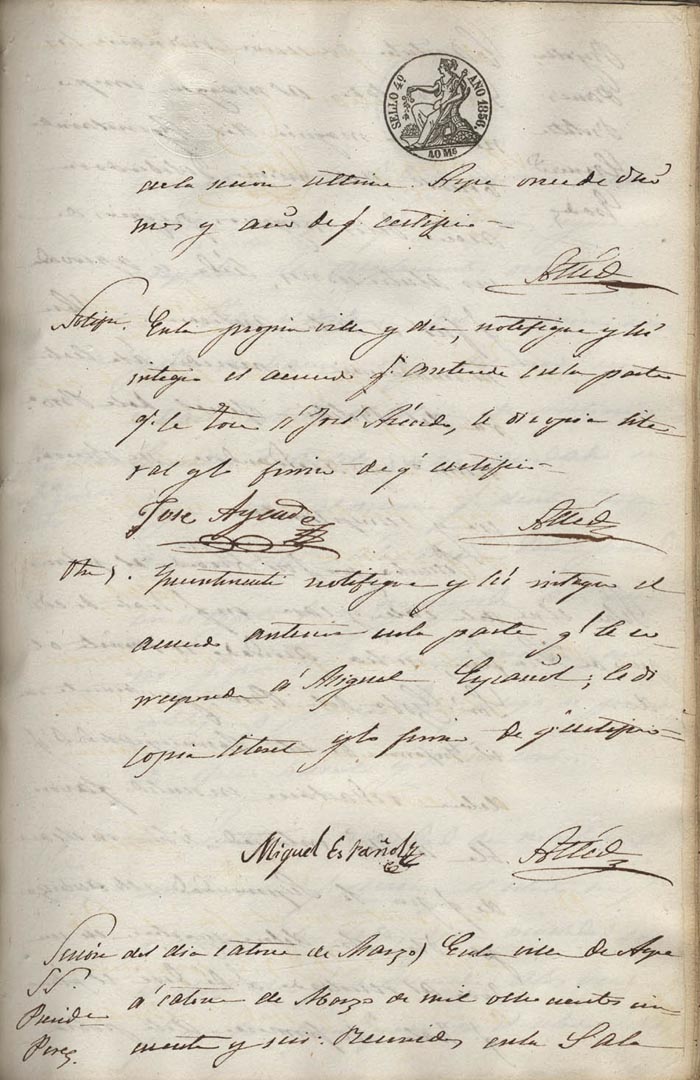 SELLO 4º AÑO 1856.
40 Ms
de la sesion ultima. Aspe once de dhos
mes y año de q. certifico =
Notifn. En la propia villa y dia, notifiqué y leí
integro el acuerdo q. antecede en la parte
q. le toca á José, le di copia lite-
ral y lo firmó de q. certifico =
Jose
Otra). notifiqué y leí integro el
acuerdo anterior en la parte q. le co-
rresponde á Miguel Español; le di
copia literal y lo firmó de q. certifico =
Miguel Español
Sesion del dia catorce de Marzo) En la villa de Aspe
SS.
á catorce de Marzo de mil ochocientos cin-
Preside
cuenta y seis: Reunidos en la Sala
Perez